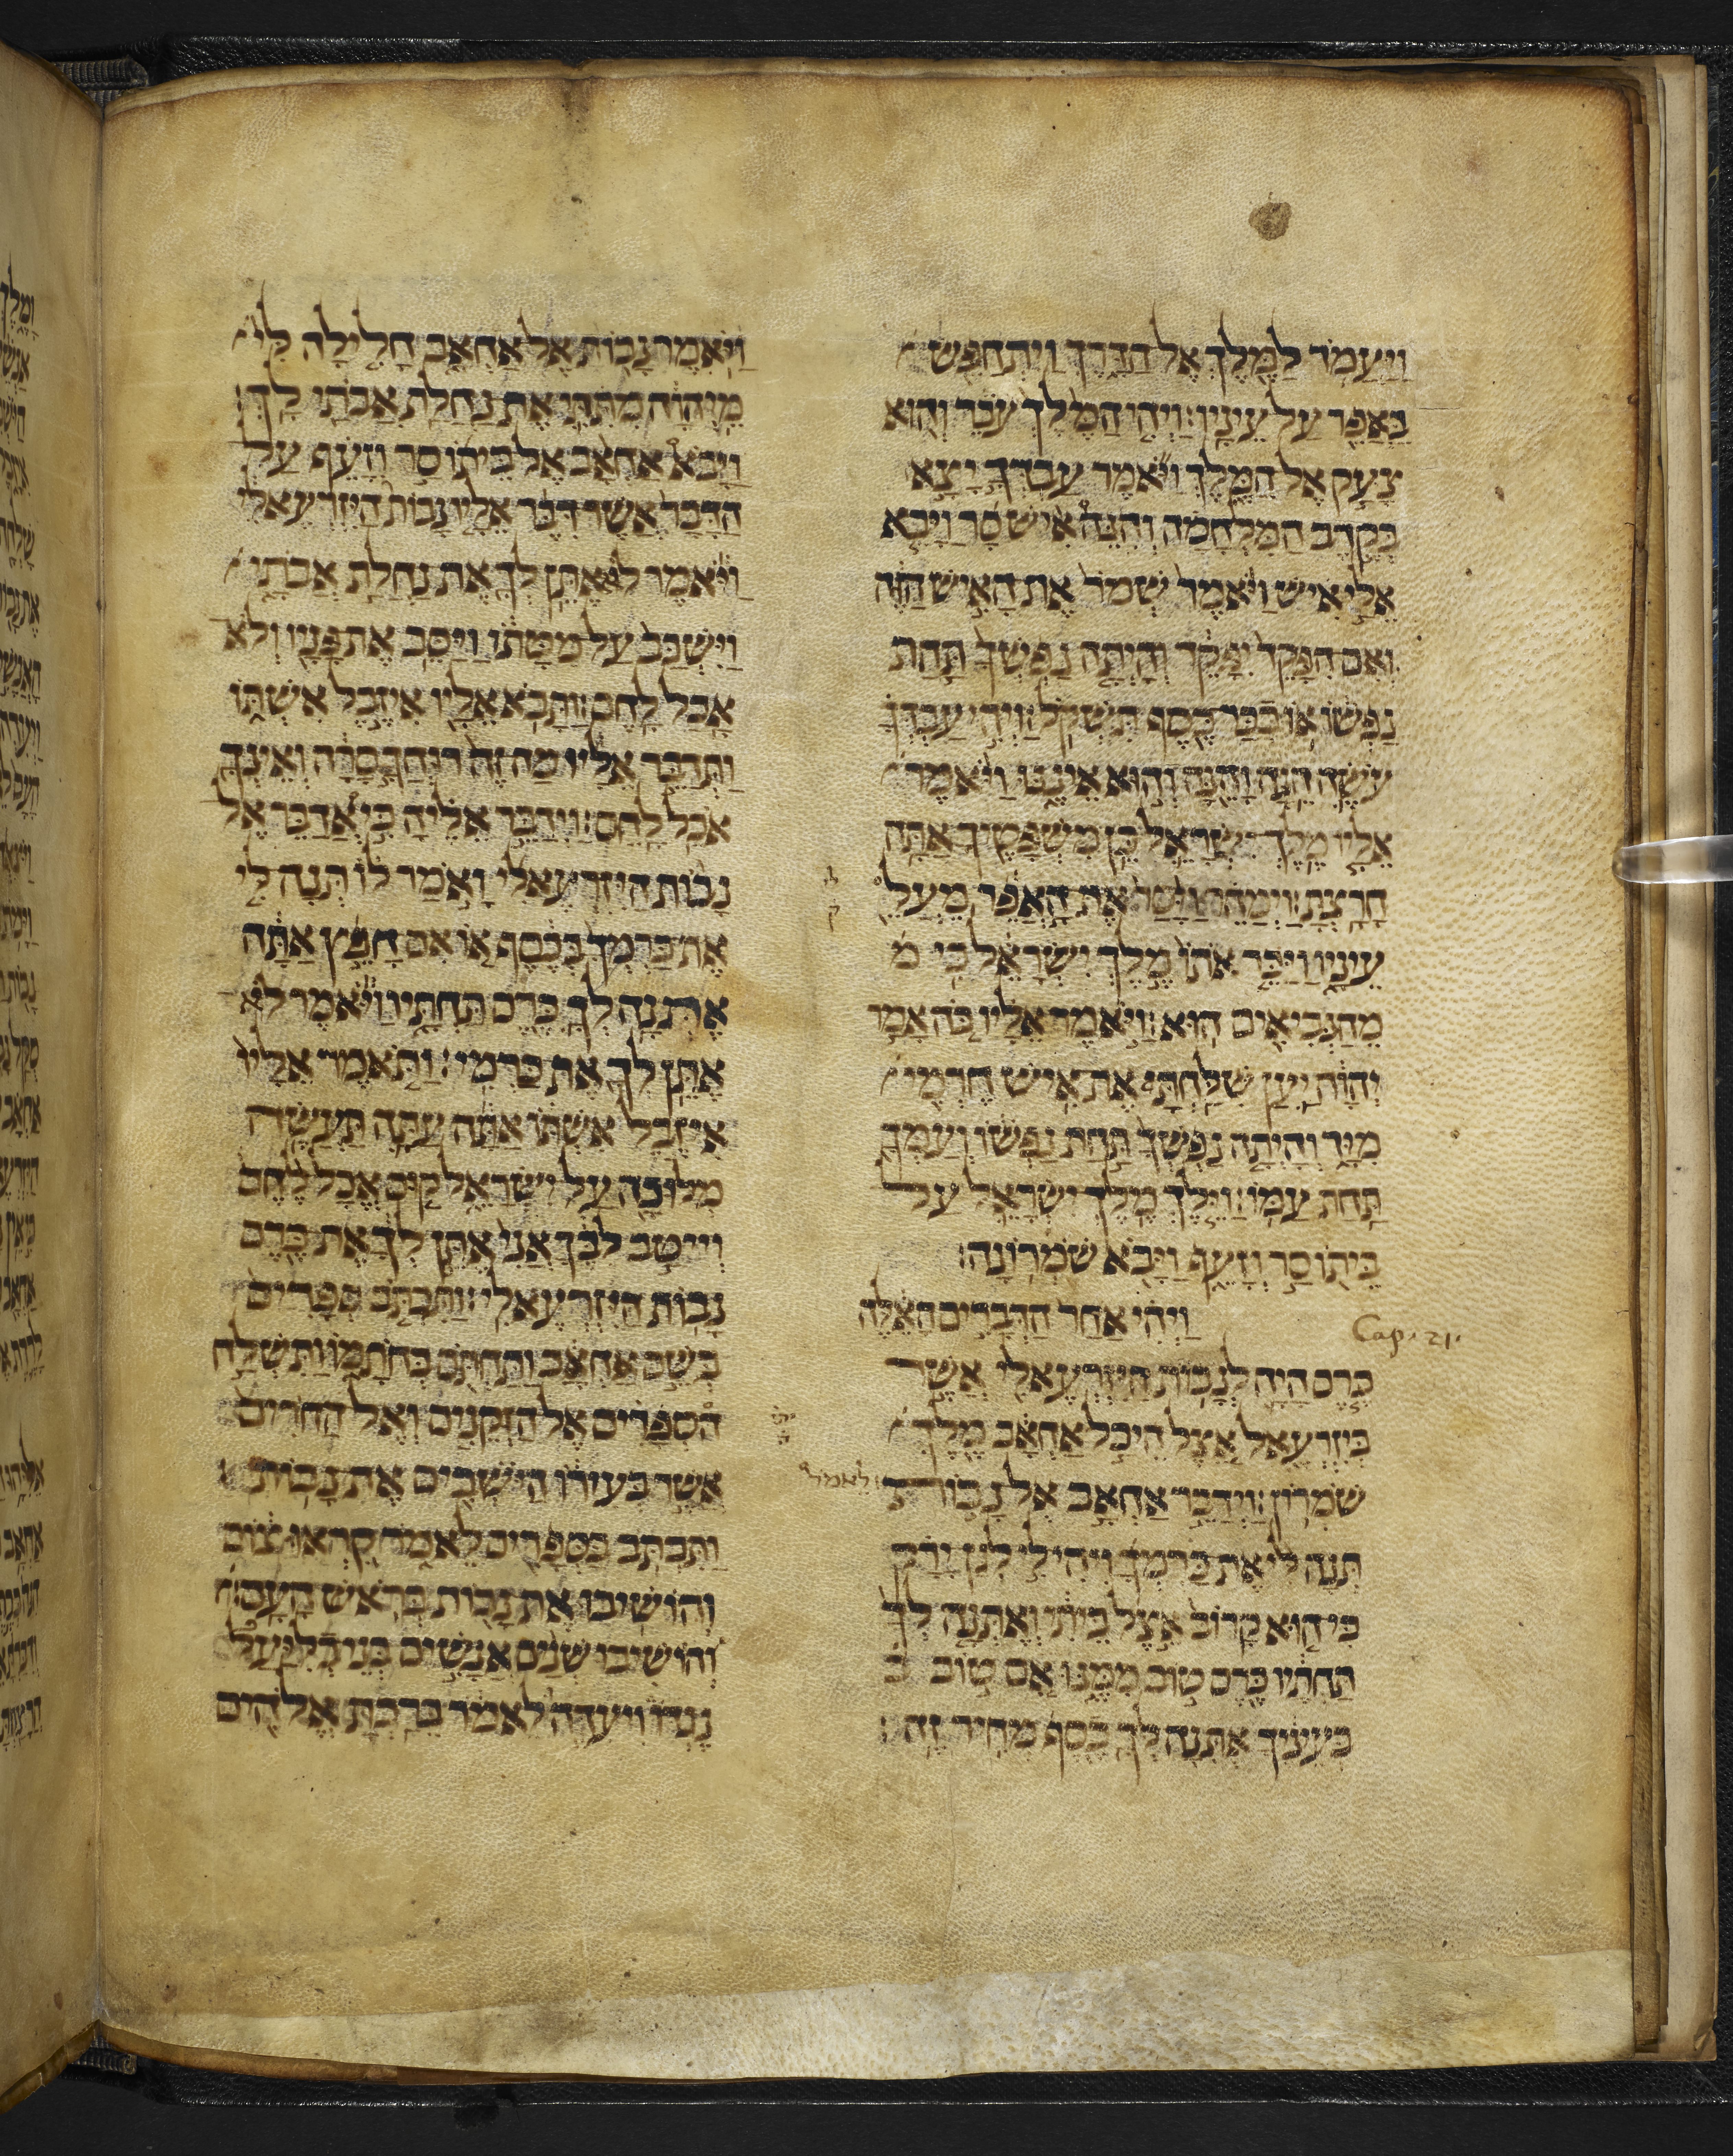 וַיַּעֲמֹד לַמֶּלֶךְ אֶל הַדָּרֶךְ וַיִּתְחַפֵּשׂ
בָּאֲפֵר עַל עֵינָיו׃ וַיְהִי הַמֶּלֶךְ עֹבֵר וְהוּא
צָעַק אֶל הַמֶּלֶךְ וַיֹּאמֶר עַבְדְּךָ יָצָא
בְקֶרֶב הַמִּלְחָמָה וְהִנֵּה אִישׁ סָר וַיָּבֵא
אֵלַי אִישׁ וַיֹּאמֶר שְׁמֹר אֶת הָאִישׁ הַזֶּה
אִם הִפָּקֵד יִפָּקֵד וְהָיְתָה נַפְשְׁךָ תַּחַת
נַפְשׁוֹ אוֹ כִכַּר כֶּסֶף תִּשְׁקֹל׃ וַיְהִי עַבְדְּךָ
עֹשֶׂה הֵנָּה וָהֵנָּה וְהוּא אֵינֶנּוּ וַיֹּאמֶר
אֵלָיו מֶלֶךְ יִשְׂרָאֵל כֵּן מִשְׁפָּטֶךָ אַתָּה
חָרָצְתָּ׃ וַיְמַהֵר וַיָּסַר אֶת הָאֲפֵר מֵעַל
עֵינָיו וַיַּכֵּר אֹתוֹ מֶלֶךְ יִשְׂרָאֵל כִּי מ
מֵהַנְּבִיאִים הוּא׃ וַיֹּאמֶר אֵלָיו כֹּה אָמַר
יְהוָה יַעַן שִׁלַּחְתָּ אֶת אִישׁ חֶרְמִי
מִיָּד וְהָיְתָה נַפְשְׁךָ תַּחַת נַפְשׁוֹ וְעַמְּךָ
תַּחַת עַמּוֹ׃ וַיֵּלֶךְ מֶלֶךְ יִשְׂרָאֵל עַל
בֵּיתוֹ סַר וְזָעֵף וַיָּבֹא שֹׁמְרוֹנָה׃
וַיְהִי אַחַר הַדְּבָרִים הָאֵלֶּה
Cap. 21.
כֶּרֶם הָיָה לְנָבוֹת הַיִּזְרְעֵאלִי אֲשֶׁר
בְּיִזְרְעֶאל אֵצֶל הֵיכַל אַחְאָב מֶלֶךְ
שֹׁמְרוֹן׃ וַיְדַבֵּר אַחְאָב אֶל נָבוֹת לאמר
תְּנָה לִּי אֶת כַּרְמְךָ וִיהִי לִי לְגַן יָרָק
כִּי הוּא קָרוֹב אֵצֶל בֵּיתִי וְאֶתְּנָה לְךָ
תַּחְתָּיו כֶּרֶם טוֹב מִמֶּנּוּ אִם טוֹב ב
בְּעֵינֶיךָ אֶתְּנָה לְךָ כֶסֶף מְחִיר זֶה׃
וַיֹּאמֶר נָבוֹת אֶל אַחְאָב חָלִילָה לִּי
מֵיְהוָה מִתִּתִּי אֶת נַחֲלַת אֲבֹתַי לָךְ׃
וַיָּבֹא אַחְאָב אֶל בֵּיתוֹ סַר וְזָעֵף עַל
הַדָּבָר אֲשֶׁר דִּבֶּר אֵלָיו נָבוֹת הַיִּזְרְעֵאלִי
וַיֹּאמֶר לֹא אֶתֵּן לְךָ אֶת נַחֲלַת אֲבֹתָי
וַיִּשְׁכַּב עַל מִטָּתוֹ וַיַּסֵּב אֶת פָּנָיו וְלֹא
אָכַל לָחֶם׃ וַתָּבֹא אֵלָיו אִיזֶבֶל אִשְׁתּוֹ
וַתְּדַבֵּר אֵלָיו מַה זֶּה רוּחֲךָ סָרָה וְאֵינְךָ
אֹכֵל לָחֶם׃ וַיְדַבֵּר אֵלֶיהָ כִּי אֲדַבֵּר אֶל
נָבוֹת הַיִּזְרְעֵאלִי וָאֹמַר לוֹ תְּנָה לִּי
אֶת כַּרְמְךָ בְּכֶסֶף אוֹ אִם חָפֵץ אַתָּה
אֶתְּנָה לְךָ כֶרֶם תַּחְתָּיו וַיֹּאמֶר לֹא
אֶתֵּן לְךָ אֶת כַּרְמִי׃ וַתֹּאמֶר אֵלָיו
אִיזֶבֶל אִשְׁתּוֹ אַתָּה עַתָּה תַּעֲשֶׂה
מְלוּכָה עַל יִשְׂרָאֵל קוּם אֱכָל לֶחֶם
וְיִיטַב לִבֶּךָ אֲנִי אֶתֵּן לְךָ אֶת כֶּרֶם
נָבוֹת הַיִּזְרְעֵאלִי׃ וַתִּכְתֹּב סְפָרִים
בְּשֵׁם אַחְאָב וַתַּחְתֹּם בְּחֹתָמוֹ וַתִּשְׁלַח
הספָרִים אֶל הַזְּקֵנִים וְאֶל הַחֹרִים
אֲשֶׁר בְּעִירוֹ הַיֹּשְׁבִים אֶת נָבוֹת
וַתִּכְתֹּב בַּסְּפָרִים לֵאמֹר קִרְאוּ צוֹם
וְהוֹשִׁיבוּ אֶת נָבוֹת בְּרֹאשׁ הָעָם׃
וְהוֹשִׁיבוּ שְׁנַיִם אֲנָשִׁים בְּנֵי בְלִיַּעַל
נֶגְדּוֹ וִיעִדֻהוּ לֵאמֹר בֵּרַכְתָּ אֱלֹהִים